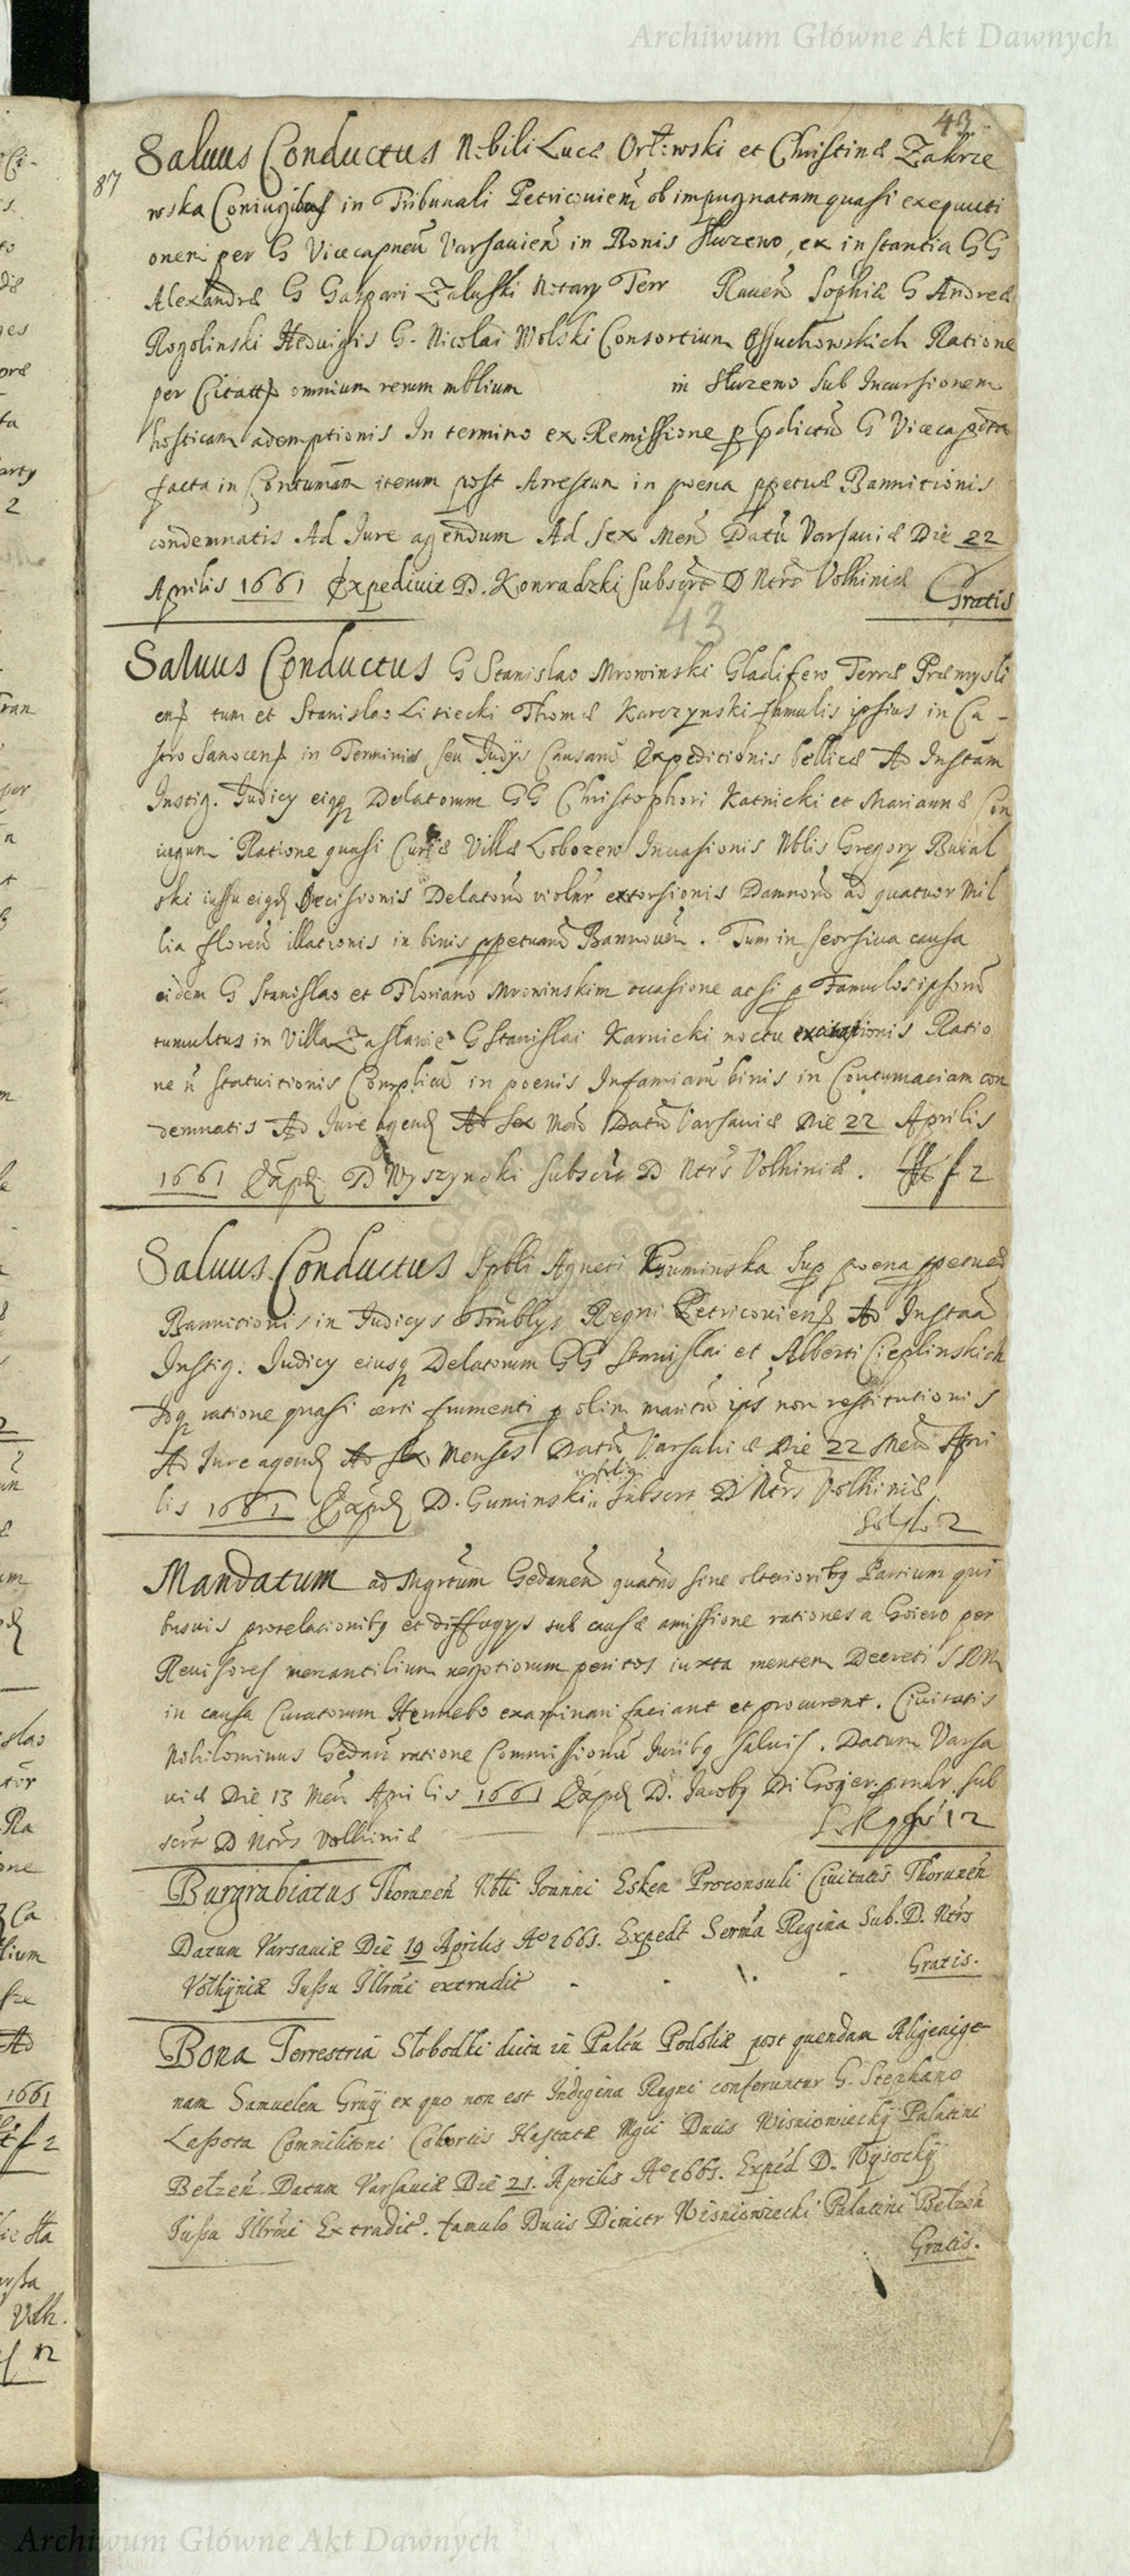 Archiwum Główne Akt Dawnych
43
87
Saluus Conductus Nobili Lucæ Orłowski et Christinæ Zakrze
wska Coniugibus in Tribunali Petricouien ob impugnatam quasi exequuti
onem per G Vicecapneū Varsauień in Bonis Służeno, ex instantia GG
Alexandræ G Gaspari Załuski Notary Terr Rauen Sophiæ G Andreæ
Rogolinski Heduigis G. Nicolai Wolski Consortium Ossuchowskich Ratione
per Citatt omnium rerum mblium in Służeno Sub Incursionem
hosticam ademptionis In termino ex Remissione p pdictū G Vicecap
facta in Contumam iterum post Arrestum in poena ppetuæ Bannitionis
condemnatis Ad Jure agendum Ad Sex Men Datū Varsauiæ Die 22
Aprilis 1661 Expediuit D. Konradzki Subscrt D Ntrs Volhiniæ Gratis
43
Saluus Conductus G Stanislao Mrowinski Gladifero Terræ Præmysli
ens tum et Stanislao Lisiecki Thomæ Karczynski famulis ipsius in Ca-
stro Sanocens in Terminis seu Judys Causarū Expeditionis bellicæ Ad Instam
Instig. Judicy eiqq Delatorum GG Christophori Karnicki et Mariannæ Con
iugum Ratione quasi Curiæ Villæ Lobozew Inuasionis Nblis Gregory Buial
ski iussu eigd Occisionis Delatorū violnr extorsionis Damnorū ad quatuor Mil
lia florenū illationis in binis ppetuarū Bannonem. Tum in seorsiua causa
eidem G Stanislao et Floriano Mrowinskim occasione ac si p Famulos ipsorū
tumultus in Villa Zasławie G Stanislai Karnicki noctu excitationis Ratio
ne ń Statuitionis Complicū in poenis Infamiarū binis in Contumaciam con
demnatis Ad Jure agend Ad Sex Men Datū Varsauiæ Die 22 Aprilis
1661 Exped D Wyszynski Subscrt D Ntrs Volhiniæ. f 2
Saluus Conductus Spbli Agneti Guminska Sup poena ppetuæ
Bannitionis in Judicys Trnblys Regni Petricouiens Ad Instaā
Instig. Judicy eiusq Delatorum GG Stanislai et Alberti Cieplinskich
Idq ratione quasi certi frumenti p olim maritū ips non restitutionis
Ad Jure agend Ad Sex Menses Datū Varsauiæ Die 22 Men Apri
lis 1661 Exped D. Guminski Subscrt D Ntrs Volhiniæ
2
Mandatum ad Mgrtum Gedanen quatns sine vlterioribq Partium qui
busuis prorelacionibq et diffugys sub causæ amissione rationes a Goiero per
Reuisores mercantilium negotiorum peritos iuxta mentem Decreti SRM
in causa Curatorum Hennebo examinari faciant et procurent. Ciuitatis
Nihilominus Gedan ratione Commissionū Juribq saluis. Datum Varsa
uiæ Die 13 Men Aprilis 1661 Exped D. Jacobq Di Gojer. Sub
scrt D Ntrs Volhiniæ 12
Burgrabiatus Thorunen Nbli Joanni Esken Proconsuli Ciuitatis Thorunen
Datum Varsauiæ Die 19 Aprilis Ao 1661. Expedt Serma Regina Sub. D. Ntrs
Volhyniæ Jussu Illrmi extradit Gratis.
Bona Terrestria Słobodki dicta in Paltu Podoliæ post quendam Alienige-
nam Samuelem Gruy ex quo non est Indigena Regni conferuntur G. Stephano
Lassota Commilitoni Cohortis Hastatæ Mgci Ducis Wisniowiecky Palatini
Bełzen. Datum Varsauiæ Die 21. Aprilis Ao 1661. Exped D. Wysocky
Jussu Illrmi Extradit. famulo Ducis Dimitr Wisniowiecki Palatini Bełzen
Gratis.
Archiwum Główne Akt Dawnych